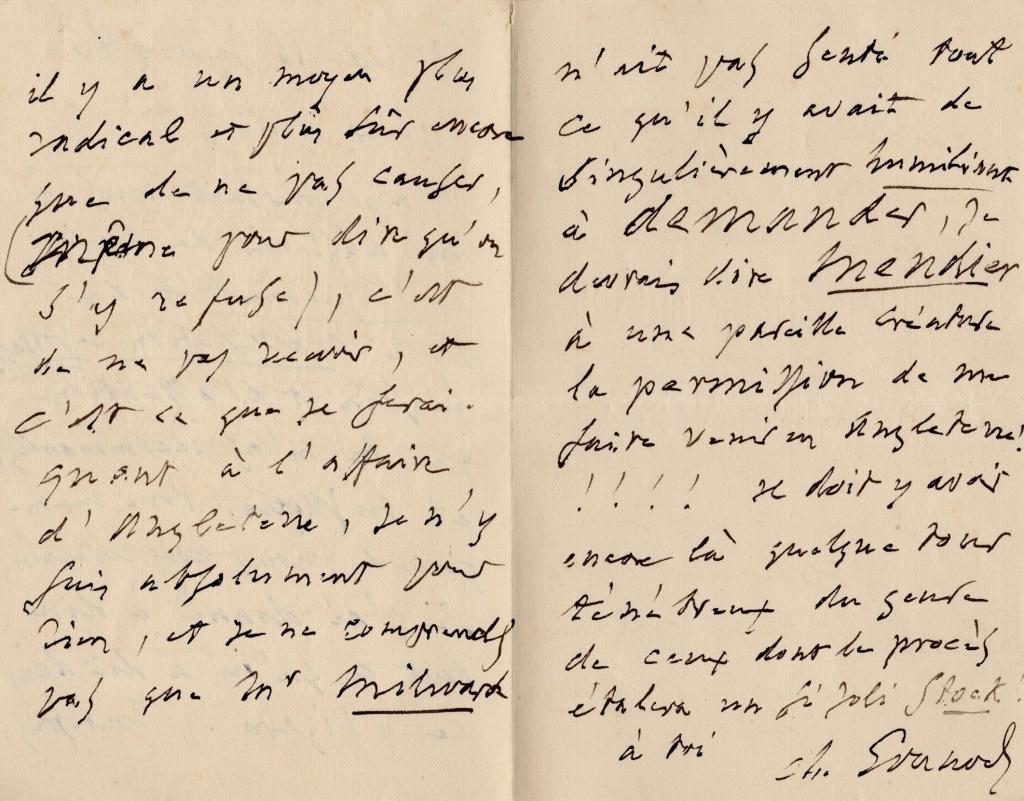 il y a un moyen plus
radical et plus sûr encore
que de ne pas causer,
(même pour dire qu'on
s'y refuse), c'est
de ne pas recevoir, et
c'est ce que je ferai.
quant à l'affaire
d'Angleterre, je n'y
suis absolument pour
rien, et je ne comprends
pas que Mr Milward
n'ait pas senti tout
ce qu'il y avait de
singulièrement humiliant
à demander, je
devrais dire mendier
à une pareille créature
la permission de me
faire venir en Angleterre!
!!!! il doit y avoir
encore là quelque tour
ténébreux du genre
de ceux dont le procès
étalera un si joli stock!
à toi
Ch. Gounod